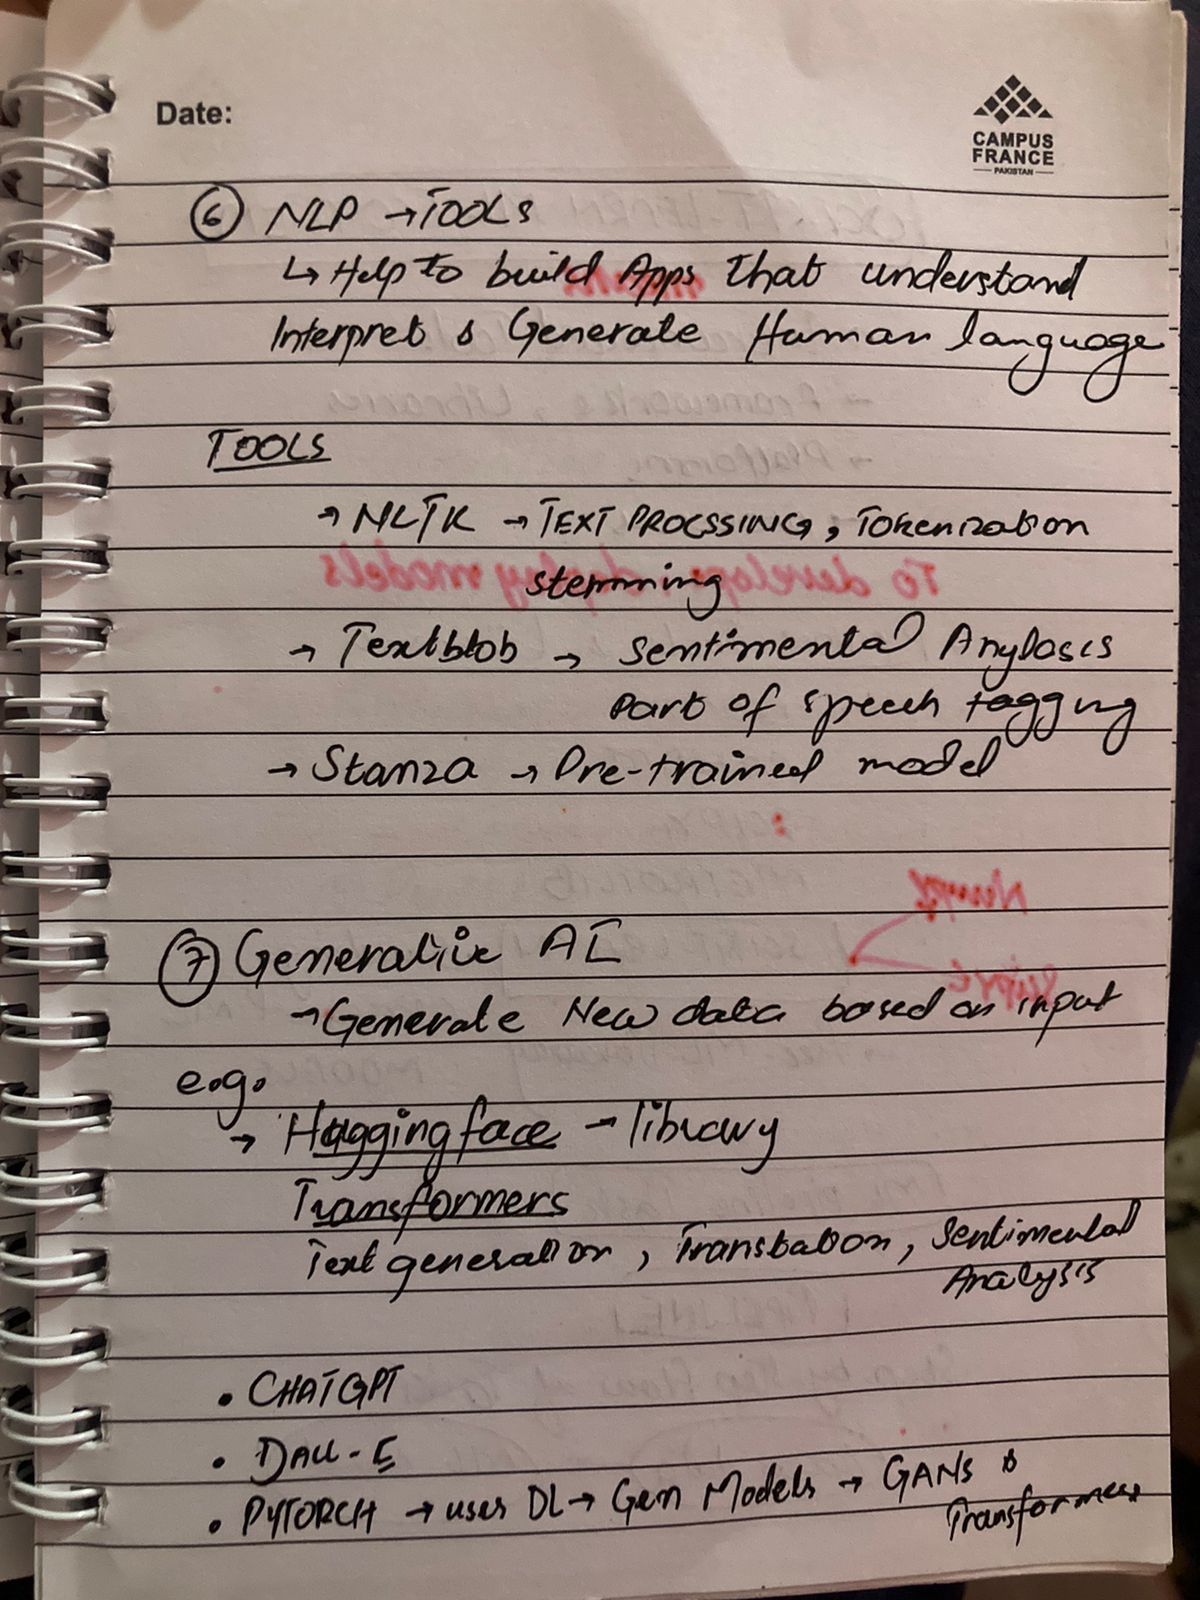 Date:
CAMPUS
FRANCE
PAKISTAN
⑥ NLP → TOOLS
↳ Help to build Apps That understand
Interpret & Generate Human language
TOOLS
→ NLTK → TEXT PROCSSING, Tokenization
stemming
→ Textblob → Sentimental Anylasis
Part of speech tagging
→ Stanza → Pre-trained model
⑦ Generative AI
→ Generate New data based on input
e.g.
→ Hagging face → library
Transformers
Text generation, Translation, Sentimental
Analysis
• CHATGPT
• DALL-E
• PYTORCH → uses DL → Gen Models → GANs &
Transformers